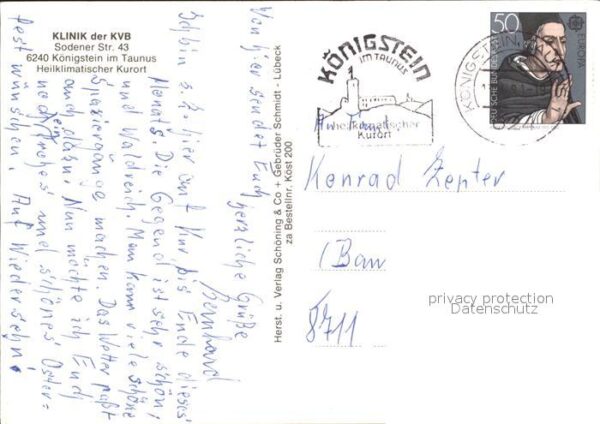 KLINIK der KVB
Sodener Str. 43
6240 Königstein im Taunus
Heilklimatischer Kurort
Von hier sendet Euch
herzliche Grüße
Bernhard
Ich bin z.Z. hier auf Kur bis Ende dieses
Monats. Die Gegend ist sehr schön,
und Waldreich. Man kann viele schöne
Spaziergänge machen. Das Wetter paßt
auch dazu. Nun möchte ich Euch
noch ein frohes und schönes Oster=
fest wünschen. Auf Wiedersehn!
Herst. u. Verlag Schöning & Co + Gebrüder Schmidt - Lübeck
za Bestellnr. Köst 200
KÖNIGSTEIN
IM TAUNUS
heilklimatischer
Kurort
KÖNIGSTEIN
50
EUROPA
DEUTSCHE BUNDESPOST
An Familie
Konrad Zepter
(Bau
8711
privacy protection
Datenschutz